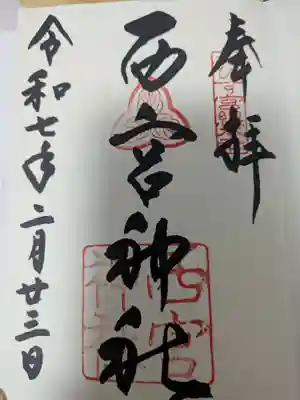 奉拝
西宮神社
令和七年二月廿三日